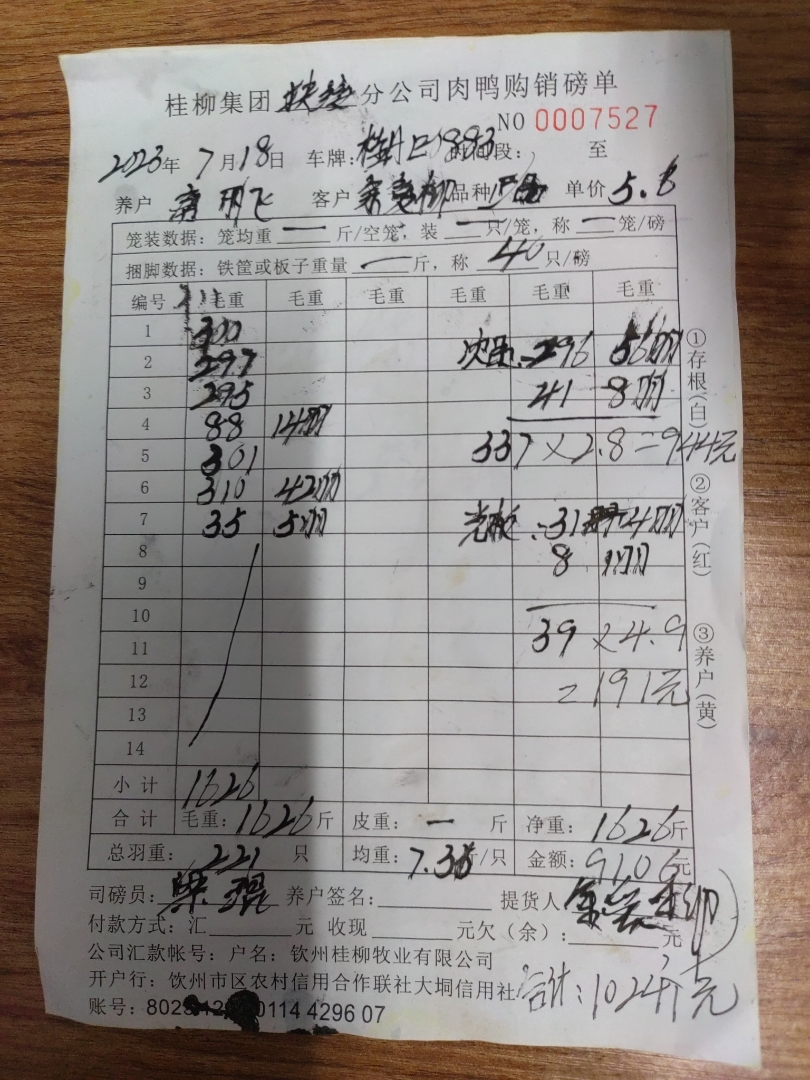 桂柳集团扶绥分公司肉鸭购销磅单
NO 0007527
2023年 7月18日 车牌: 段: 至
养户 飞 客户 品种 单价 5.6
笼装数据: 笼均重 一 斤/空笼, 装 一 只/笼, 称 一 笼/磅
捆脚数据: 铁筐或板子重量 一 斤, 称 40 只/磅
编号 毛重 毛重 毛重 毛重 毛重 毛重
1 300
2 297 次品: 296 56只
3 295 41 8只
4 88 14只
5 301 337×2.8=944元
6 310 42只
7 35 5只 光板: 31 4只
8 8 1只
9
10
11 39×4.9
12 =191元
13
14
小计 1626
合计 毛重: 1626斤 皮重: 一 斤 净重: 1626斤
总羽重: 221 只 均重: 7.36斤/只 金额: 9106元
司磅员: 梁 养户签名: 提货人
付款方式: 汇 元 收现 元欠(余): 元
公司汇款帐号: 户名: 钦州桂柳牧业有限公司
开户行: 钦州市区农村信用合作联社大垌信用社 合计: 10241元
账号: 802 12 0114 4296 07
①存根(白) ②客户(红) ③养户(黄)